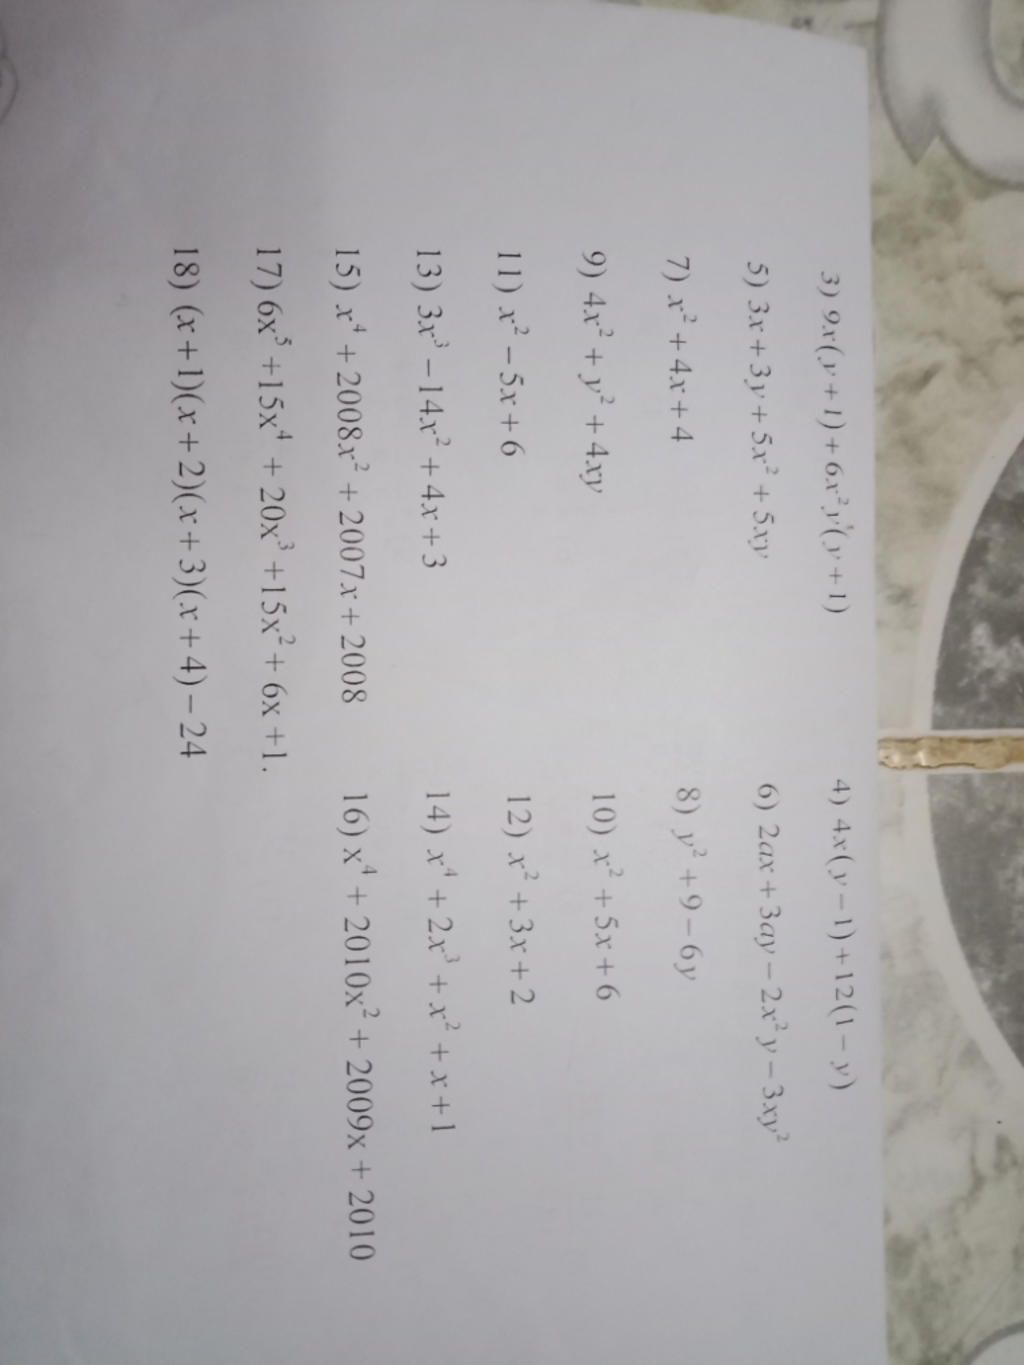 3) 9x(y+1)+6x²y(y+1)
4) 4x(y−1)+12(1−y)
5) 3x+3y+5x²+5xy
6) 2ax+3ay−2x²y−3xy²
7) x²+4x+4
8) y²+9−6y
9) 4x²+y²+4xy
10) x²+5x+6
11) x²−5x+6
12) x²+3x+2
13) 3x³−14x²+4x+3
14) x⁴+2x³+x²+x+1
15) x⁴+2008x²+2007x+2008
16) x⁴+2010x²+2009x+2010
17) 6x⁵+15x⁴+20x³+15x²+6x+1.
18) (x+1)(x+2)(x+3)(x+4)−24